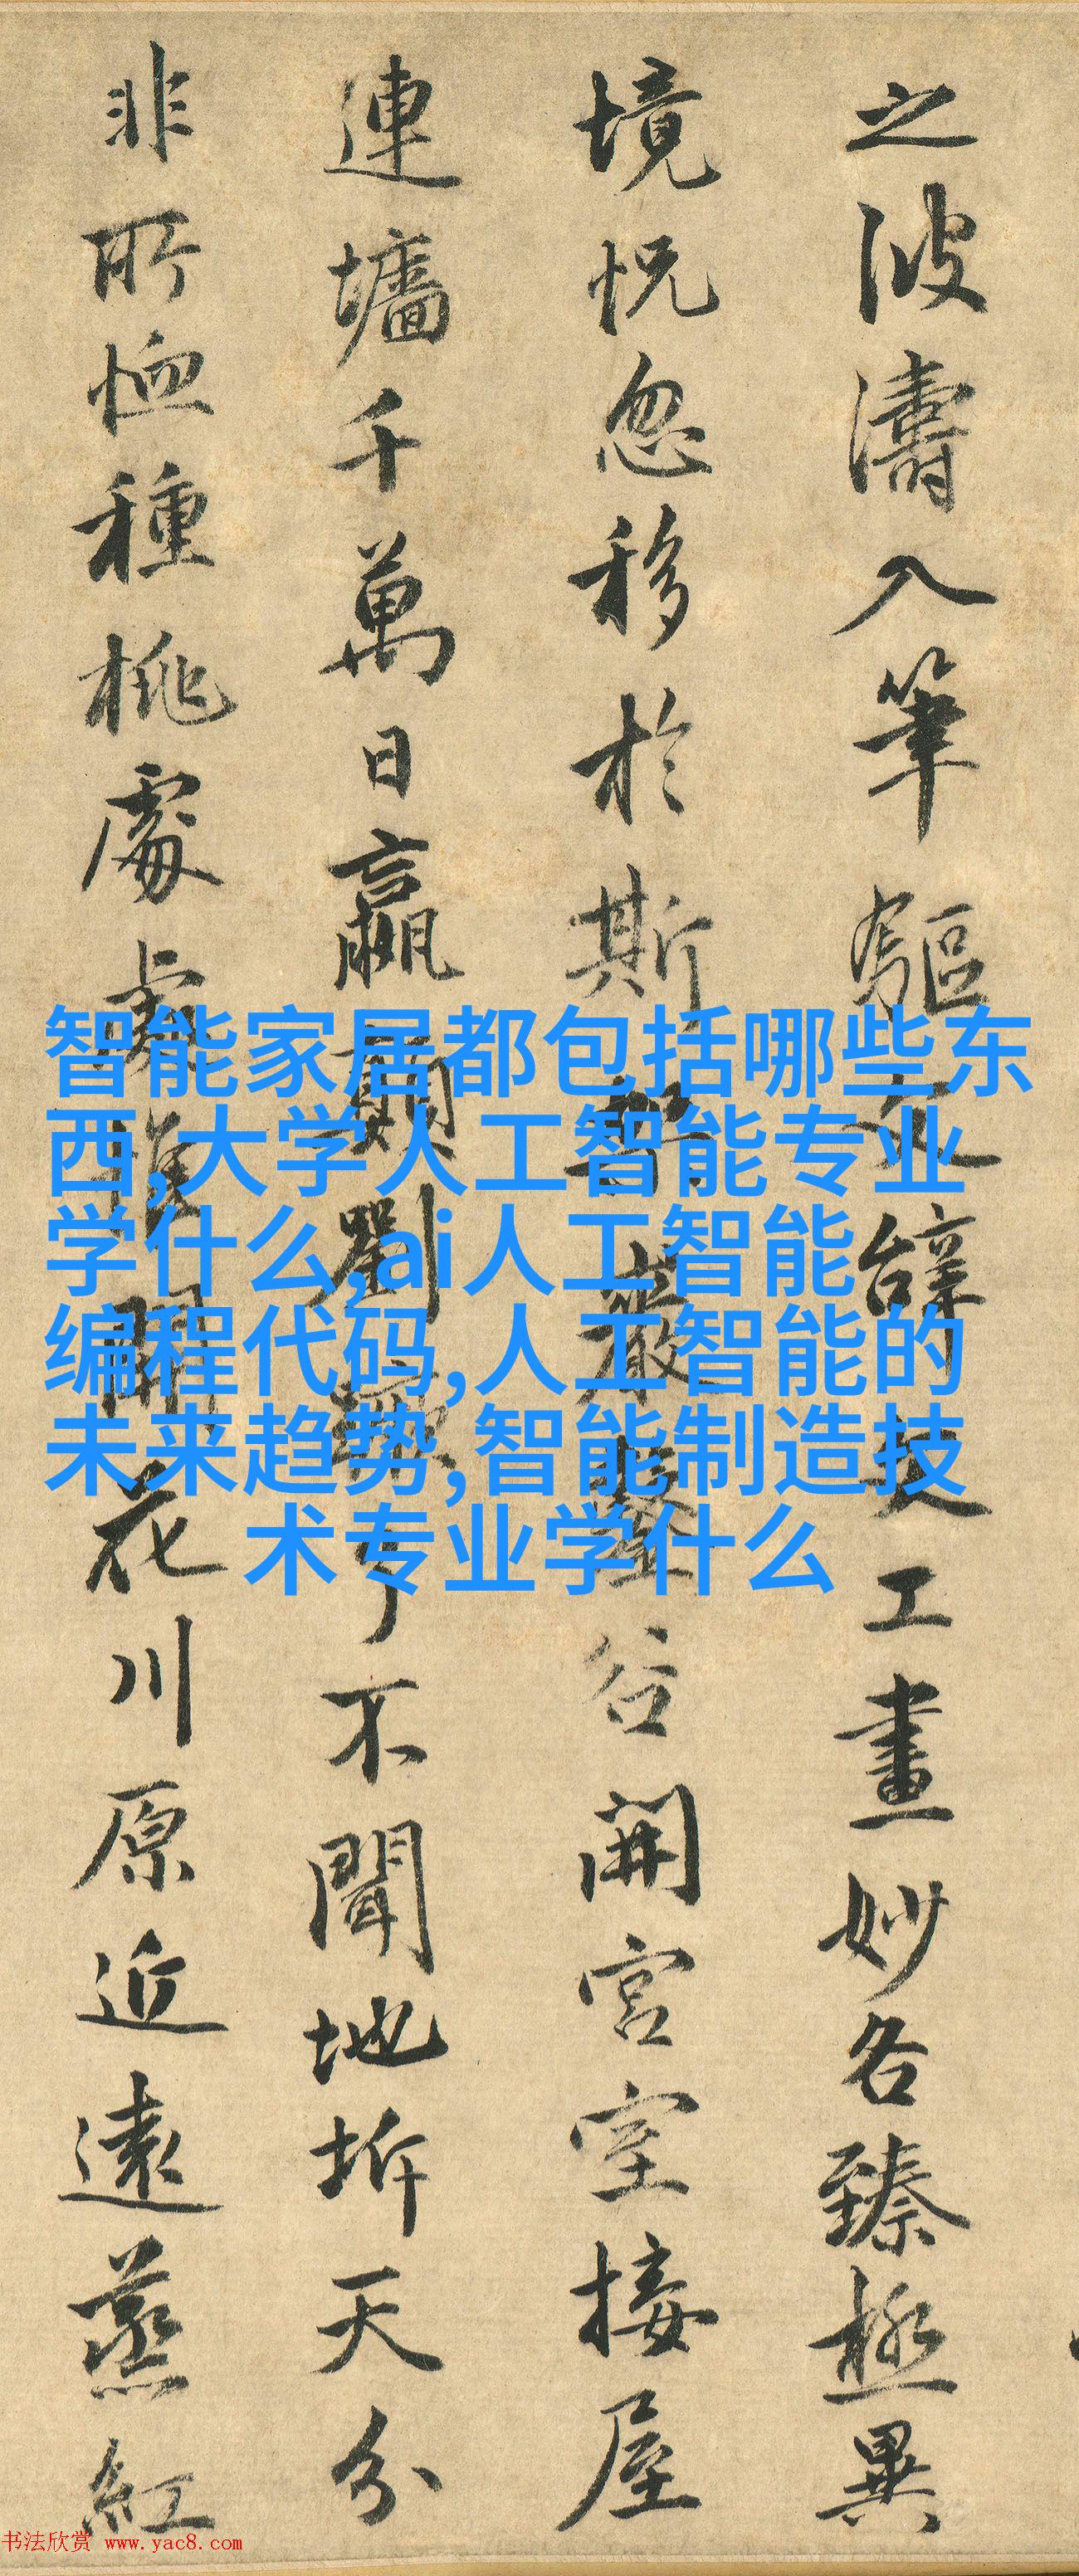 之波濤入筆驅文辭文工畫妙各臻極異
境恍忽移於斯架巖鑿谷開宮室接屋
連墻千萬日嬴顛劉蹶了不聞地坼天分
非所恤種桃處處惟開花川原近遠蒸紅
智能家居都包括哪些东
西,大学人工智能专业
学什么,ai人工智能
编程代码,人工智能的
未来趋势,智能制造技
术专业学什么
书法欣赏 www.yac8.com